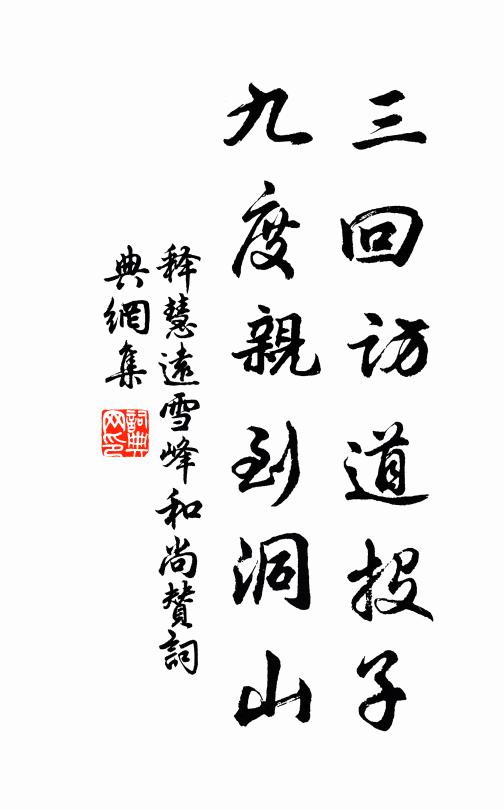 三回访道投子
九度親到洞山
释慧遠雪峰和尚贊詞
典網集
詞典网印